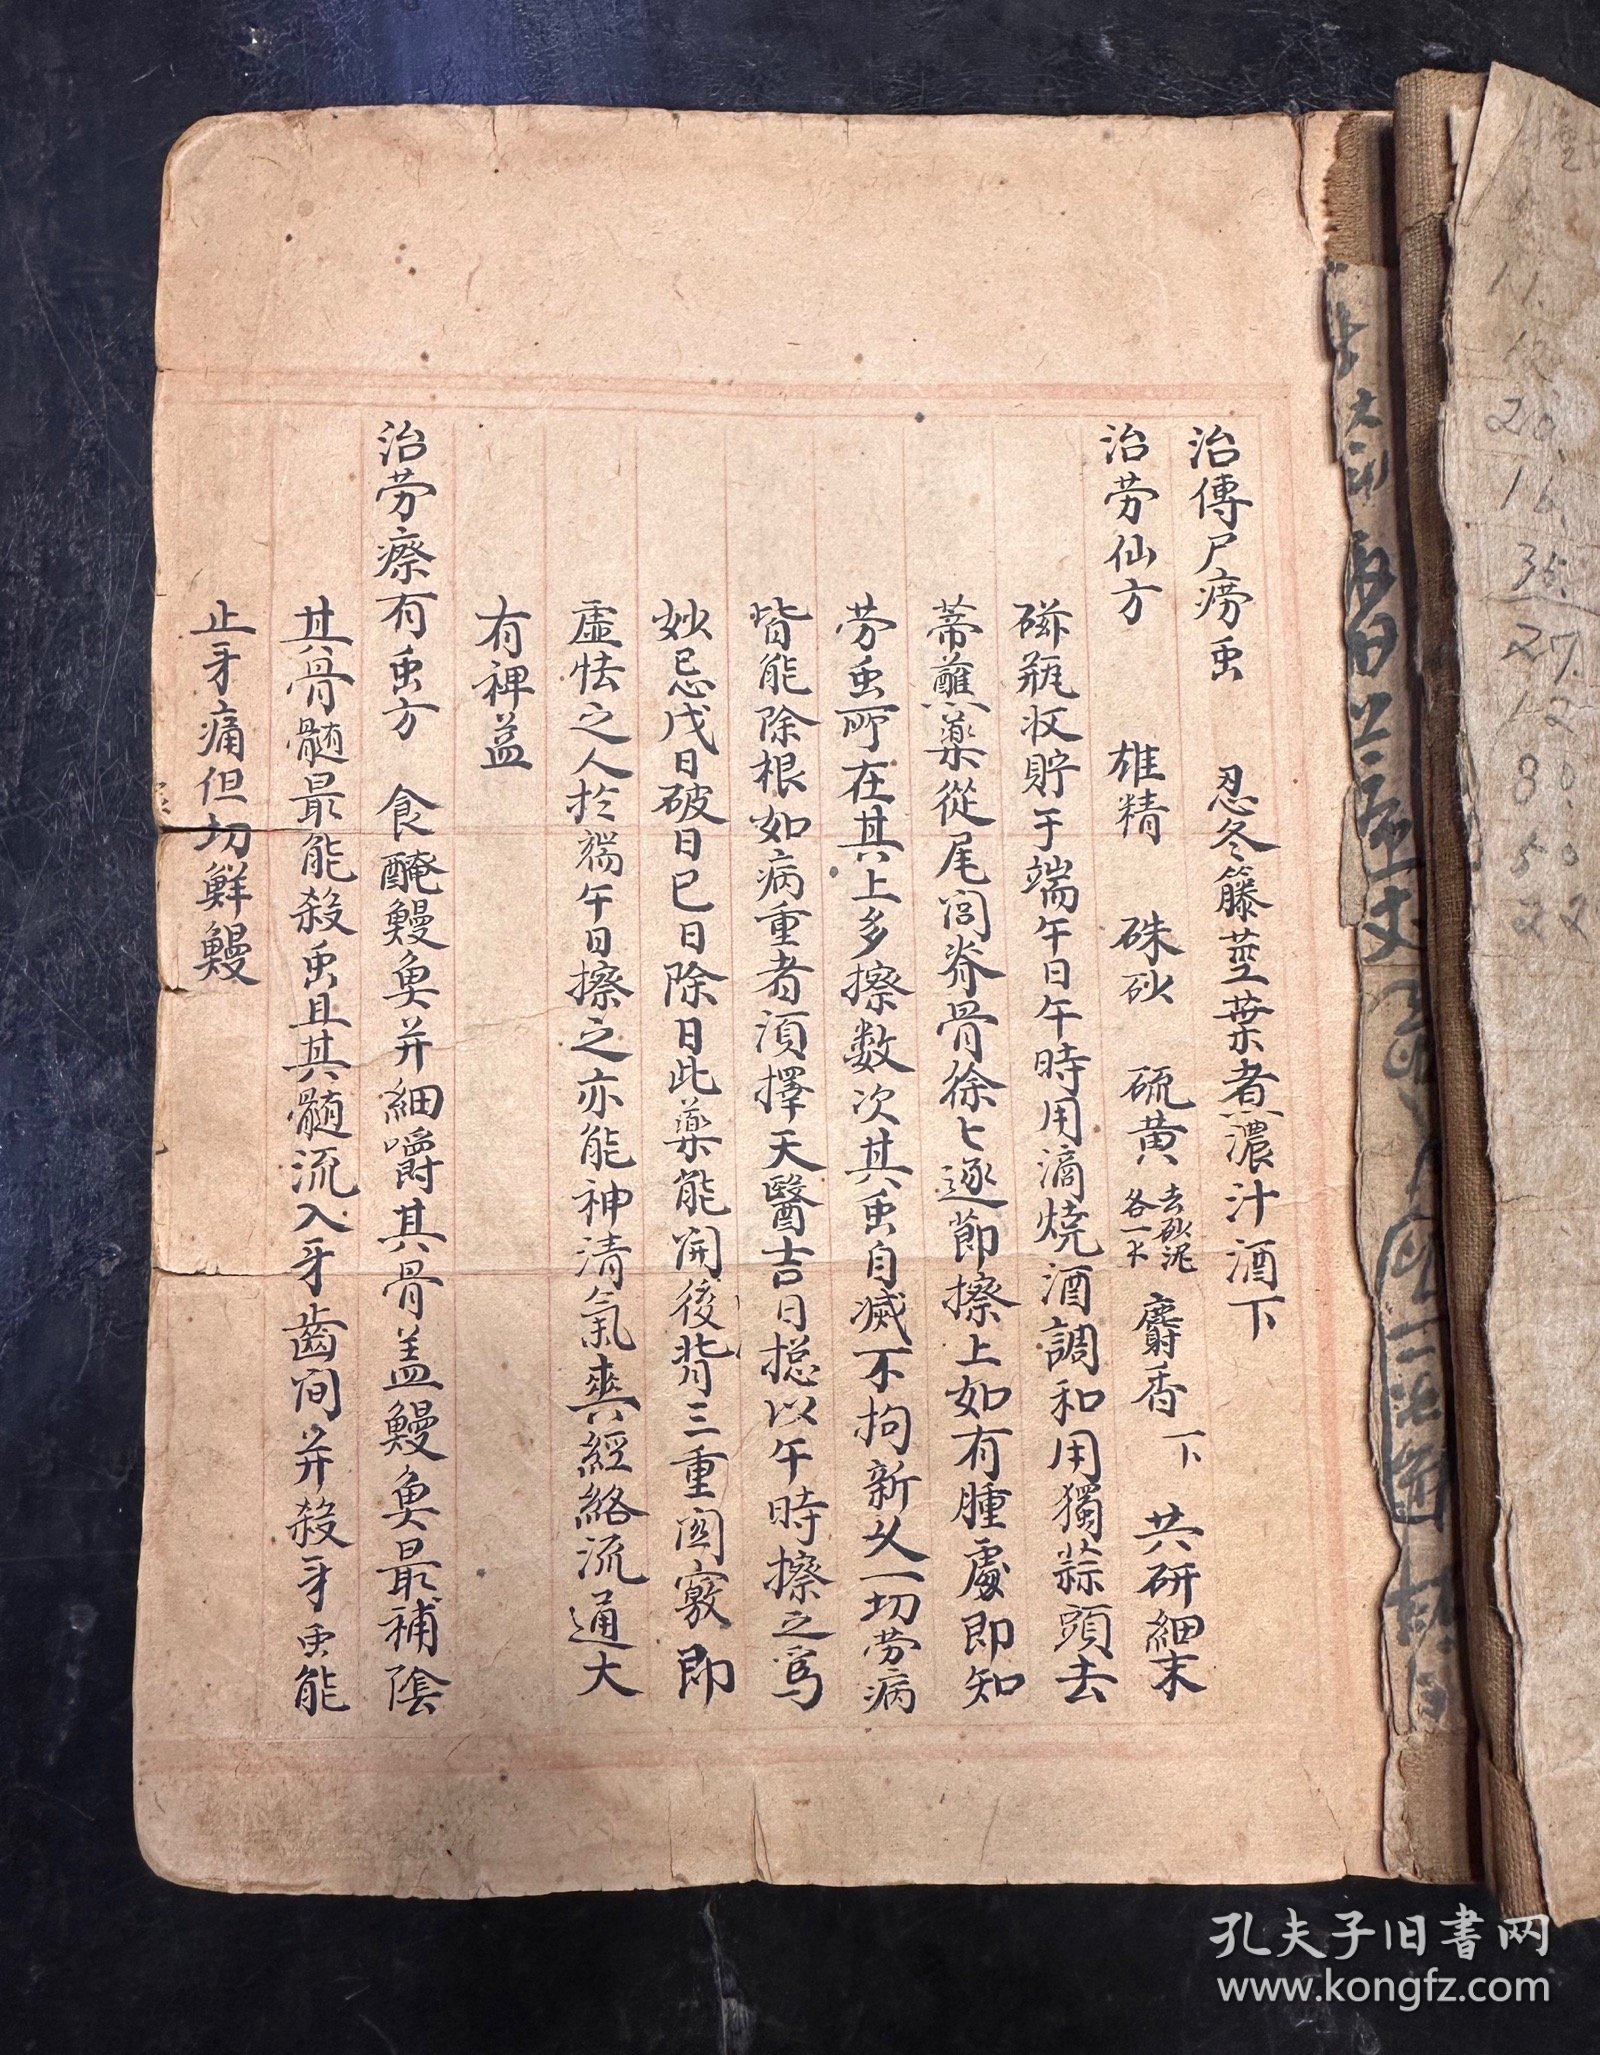 治傳尸癆虫　忍冬籐莖葉煮濃汁酒下
治劳仙方　雄精　硃砂　硫黄　去砂泥各一下　麝香一下　共研細末
磁瓶收貯于端午日午時用滴燒酒調和用獨蒜頭去
蒂蘸藥從尾閭脊骨徐匕逐節擦上如有腫處即知
劳虫所在其上多擦数次其虫自滅不拘新久一切劳病
皆能除根如病重者須擇天醫吉日摠以午時擦之為
妙忌戊日破日巳日除日此藥能開後背三重関竅即
虚怯之人於端午日擦之亦能神清氣爽經絡流通大
有裨益
治劳瘵有虫方　食醃鰻魚并細嚼其骨盖鰻魚最補陰
其骨髓最能殺虫且其髓流入牙齒間并殺牙虫能
止牙痛但切鮮鰻
11.
20.
16.
35.
27.
12
80
50
22
孔夫子旧书网
www.kongfz.com